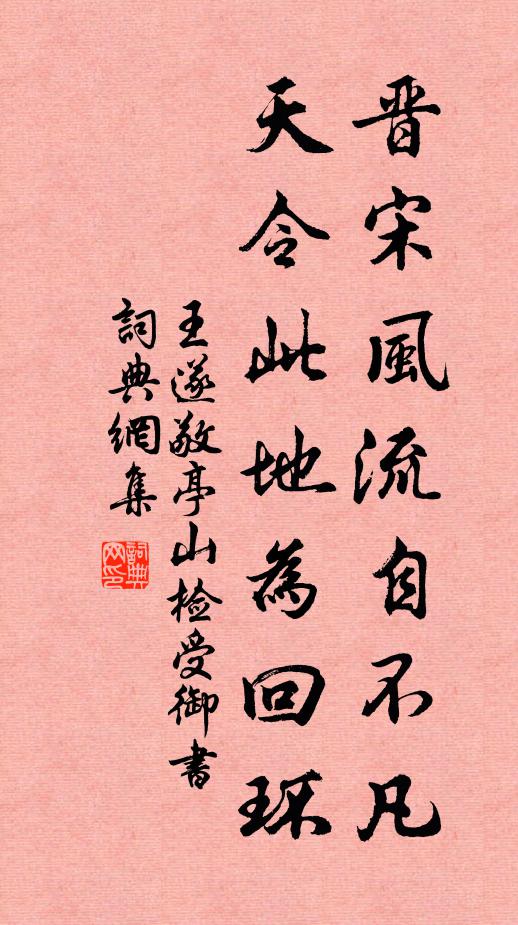 晋宋風流自不凡
天令此地為回环
王遂敬亭山检受御書
詞典網集
詞典
网印